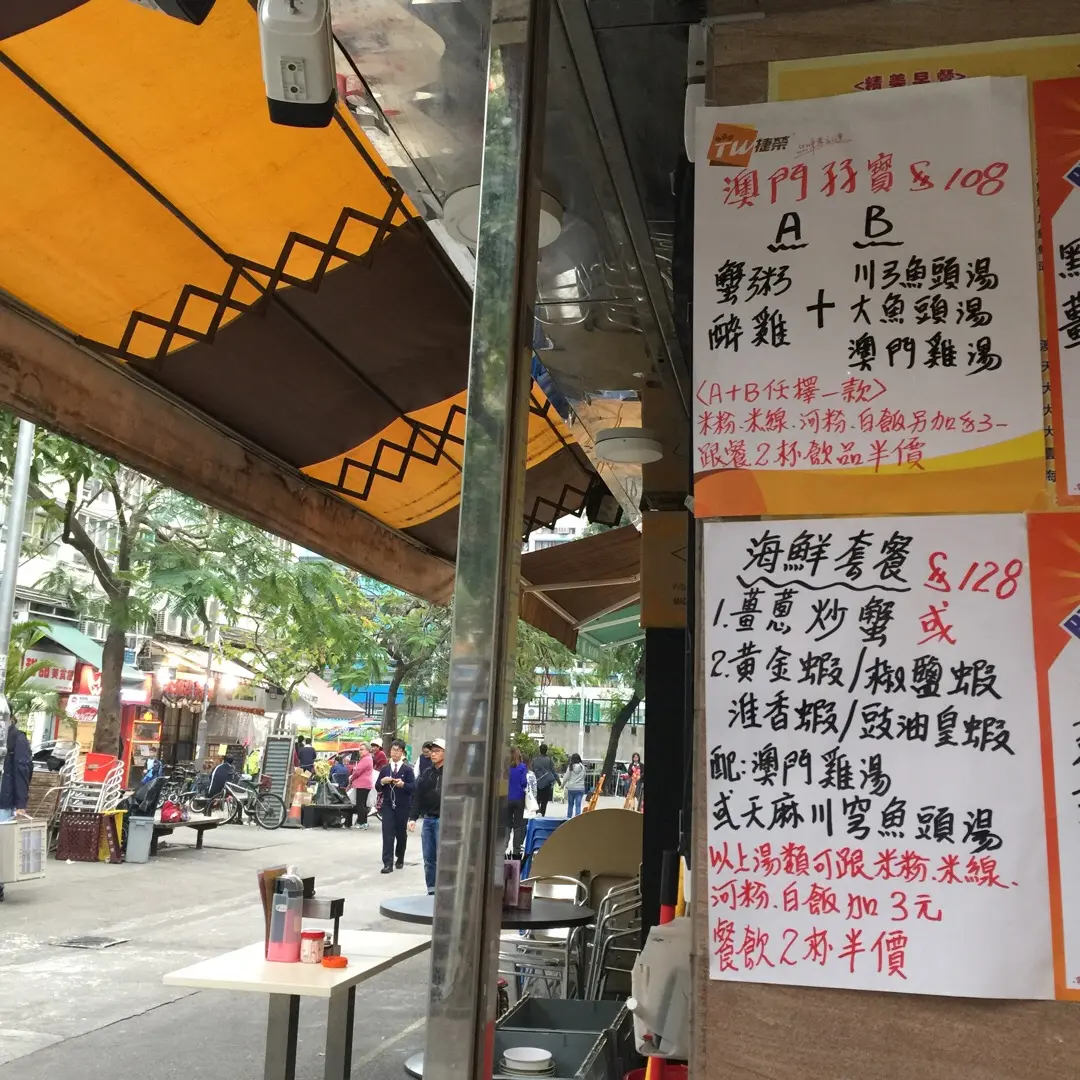 精美早餐
TW 捷榮
澳門孖寶 $108
A B
蟹粥
醉雞
+
川弓魚頭湯
大魚頭湯
澳門雞湯
〈A+B任擇一款〉
米粉.米線.河粉.白飯另加$3-
跟餐2杯飲品半價
海鮮套餐 $128
1.薑蔥炒蟹 或
2.黃金蝦/椒鹽蝦
淮香蝦/豉油皇蝦
配:澳門雞湯
或天麻川芎魚頭湯
以上湯類可跟米粉.米線.
河粉.白飯加3元
餐飲2杯半價